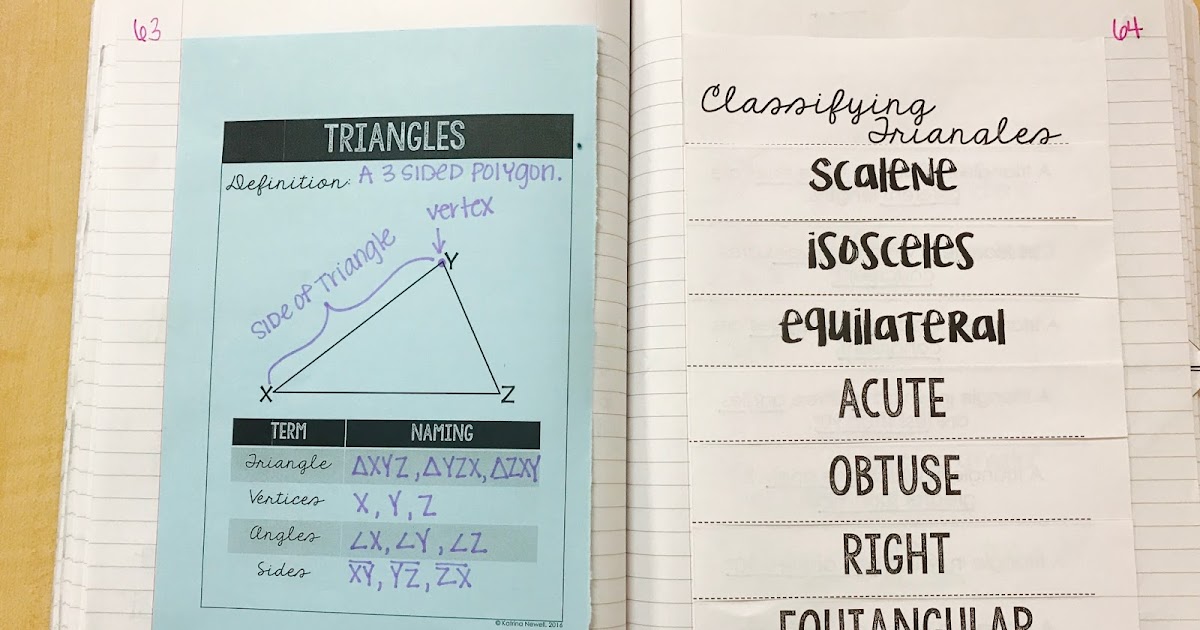 63
TRIANGLES
Definition: A 3 SIDED POLYGON.
vertex
SIDE OF TRIANGLE
Y
X
Z
TERM NAMING
Triangle ΔXYZ, ΔYZX, ΔZXY
Vertices X, Y, Z
Angles ∠X, ∠Y, ∠Z
Sides X̅Y̅, Y̅Z̅, Z̅X̅
© Katrina Newell, 2016
64
Classifying
Triangles
SCALENE
ISOSCELES
EQUILATERAL
ACUTE
OBTUSE
RIGHT
EQUIANGULAR